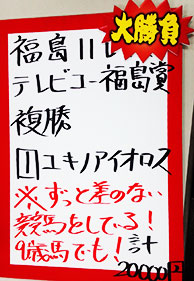 大勝負
福島11
テレビユー福島賞
複勝
1 ユキノアイオロス
※ずっと差のない
競馬をしている!
9歳馬でも!計
20000円